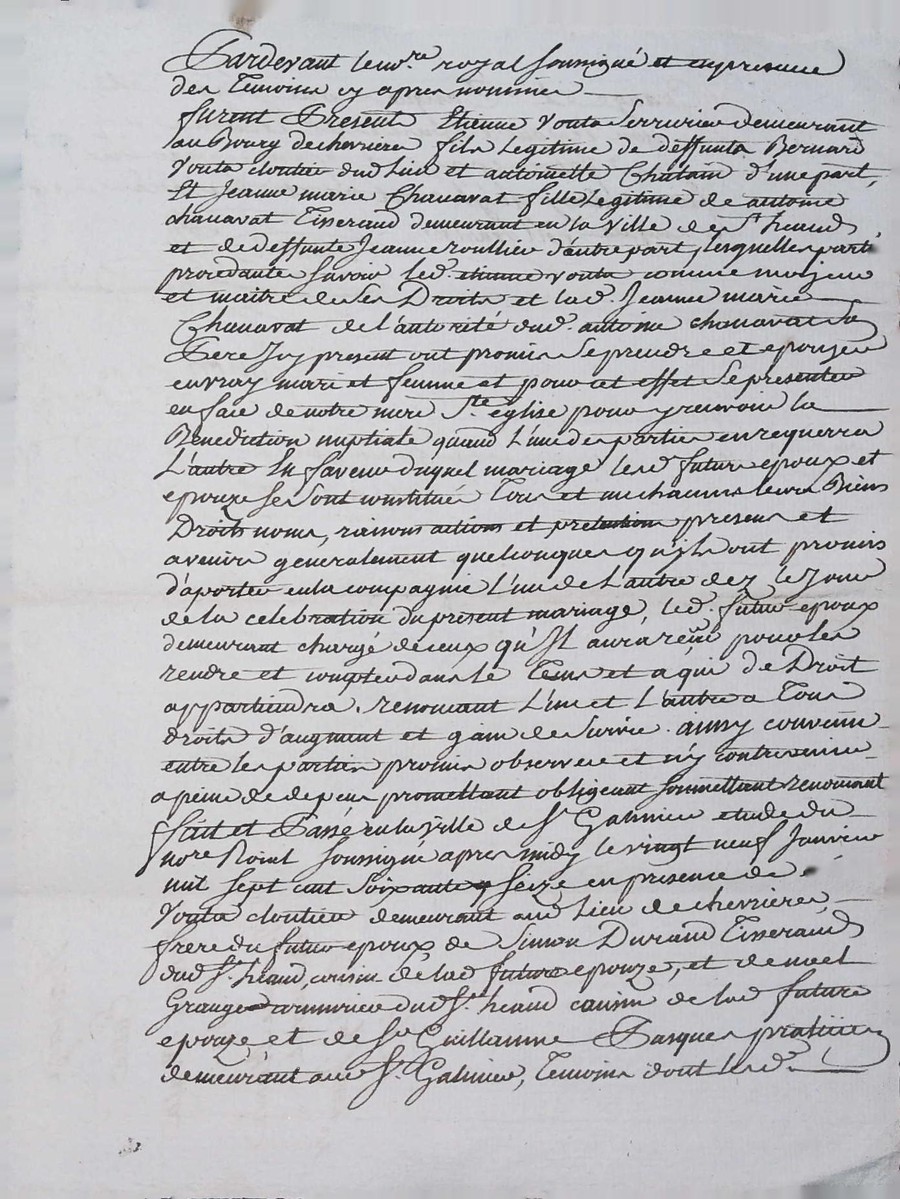 Pardevant le no.re royal soussigné et en presence
des Temoins cy apres nommés
furent Presents Etienne Youta Serrurier demeurant
au Bourg de chevrieres fils Legitime de deffunts Bernard
Youta cloutier dud. Lieu et antoinette Chatain d'une part,
Et Jeanne marie Chauavat fille Legitime de antoine
chauavat Tisserand demeurant en la Ville de St. heand
et de deffunte Jeanne roullier d'autre part, lesquelles parties
procedantes savoir led. etienne youta comme majeur
et maitre de ses Droits et lad. Jeanne marie
Chauavat de l'autorité dud. antoine chauavat son
Pere Icy present ont promis se prendre et epouser
en vray mari et femme et pour cet effet se presenter
en face de notre mere Ste. eglise pour y recevoir la
Benediction nuptiale quand L'une des parties en requerra
L'autre En faveur duquel mariage les d. futurs epoux et
epouze se sont constitués Tous et un chacuns leurs Biens
Droits noms, raisons actions et pretentions presens et
avenirs generalement quelconques qu'ils ont promis
d'aporter en la compagnie L'un de L'autre dez le Jour
de la celebration du present mariage, led. futur epoux
demeurant chargé de ceux qu'Il aura reçu pour les
rendre et compter dans le Tems et a qui de Droit
appartiendra. renonçant L'un et L'autre a Tous
droits d'augment et gain de survie. ainsy convenu
entre les parties promis observer et n'y contrevenir
a peine de depens promettant obligeant soumettant renonçant
fait et Passé en la Ville de St. Galmier etude du
no.re Roial soussigné apres midy le vingt neuf Janvier
mil sept cent soixante seize en presence de
Youta cloutier demeurant aud. Lieu de chevrieres
frere du futur epoux de Simon Durand Tisserand
dud. St. heand, cousin de lad. future epouze, et de noel
Grange dud. St. heand cousin de lad. future
epouze et de Sr. Guillaume Pasquer praticien
demeurant aud. St. Galmier, Temoins dont les d.